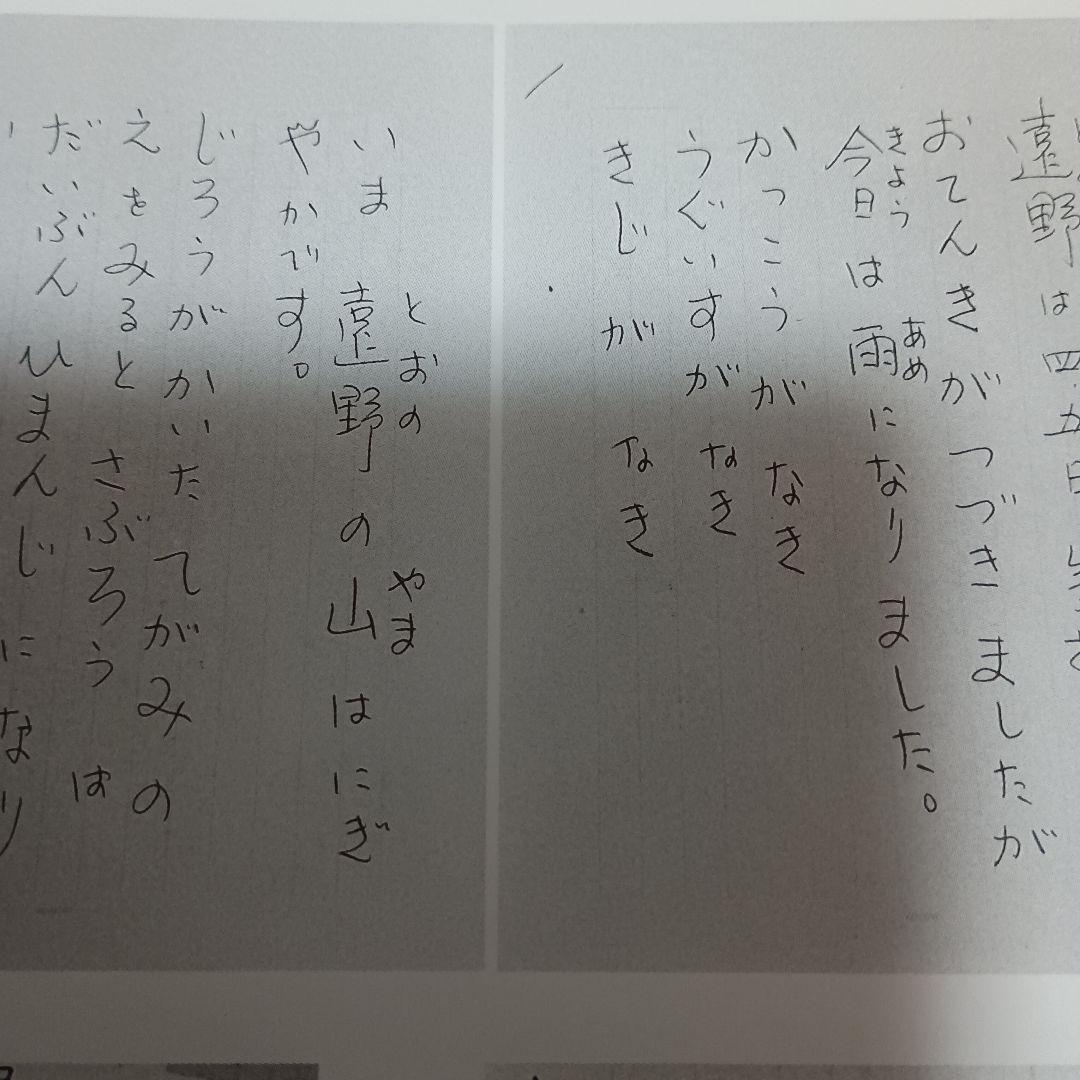 遠野は四五日
おてんきがつづきましたが
今日は雨になりました。
きょう
あめ
かっこうがなき
うぐいすがなき
きじがなき
いま遠野の山はにぎ
とおの
やま
やかです。
じろうがかいたてがみの
えをみるとさぶろうは
だいぶんひまんじになり